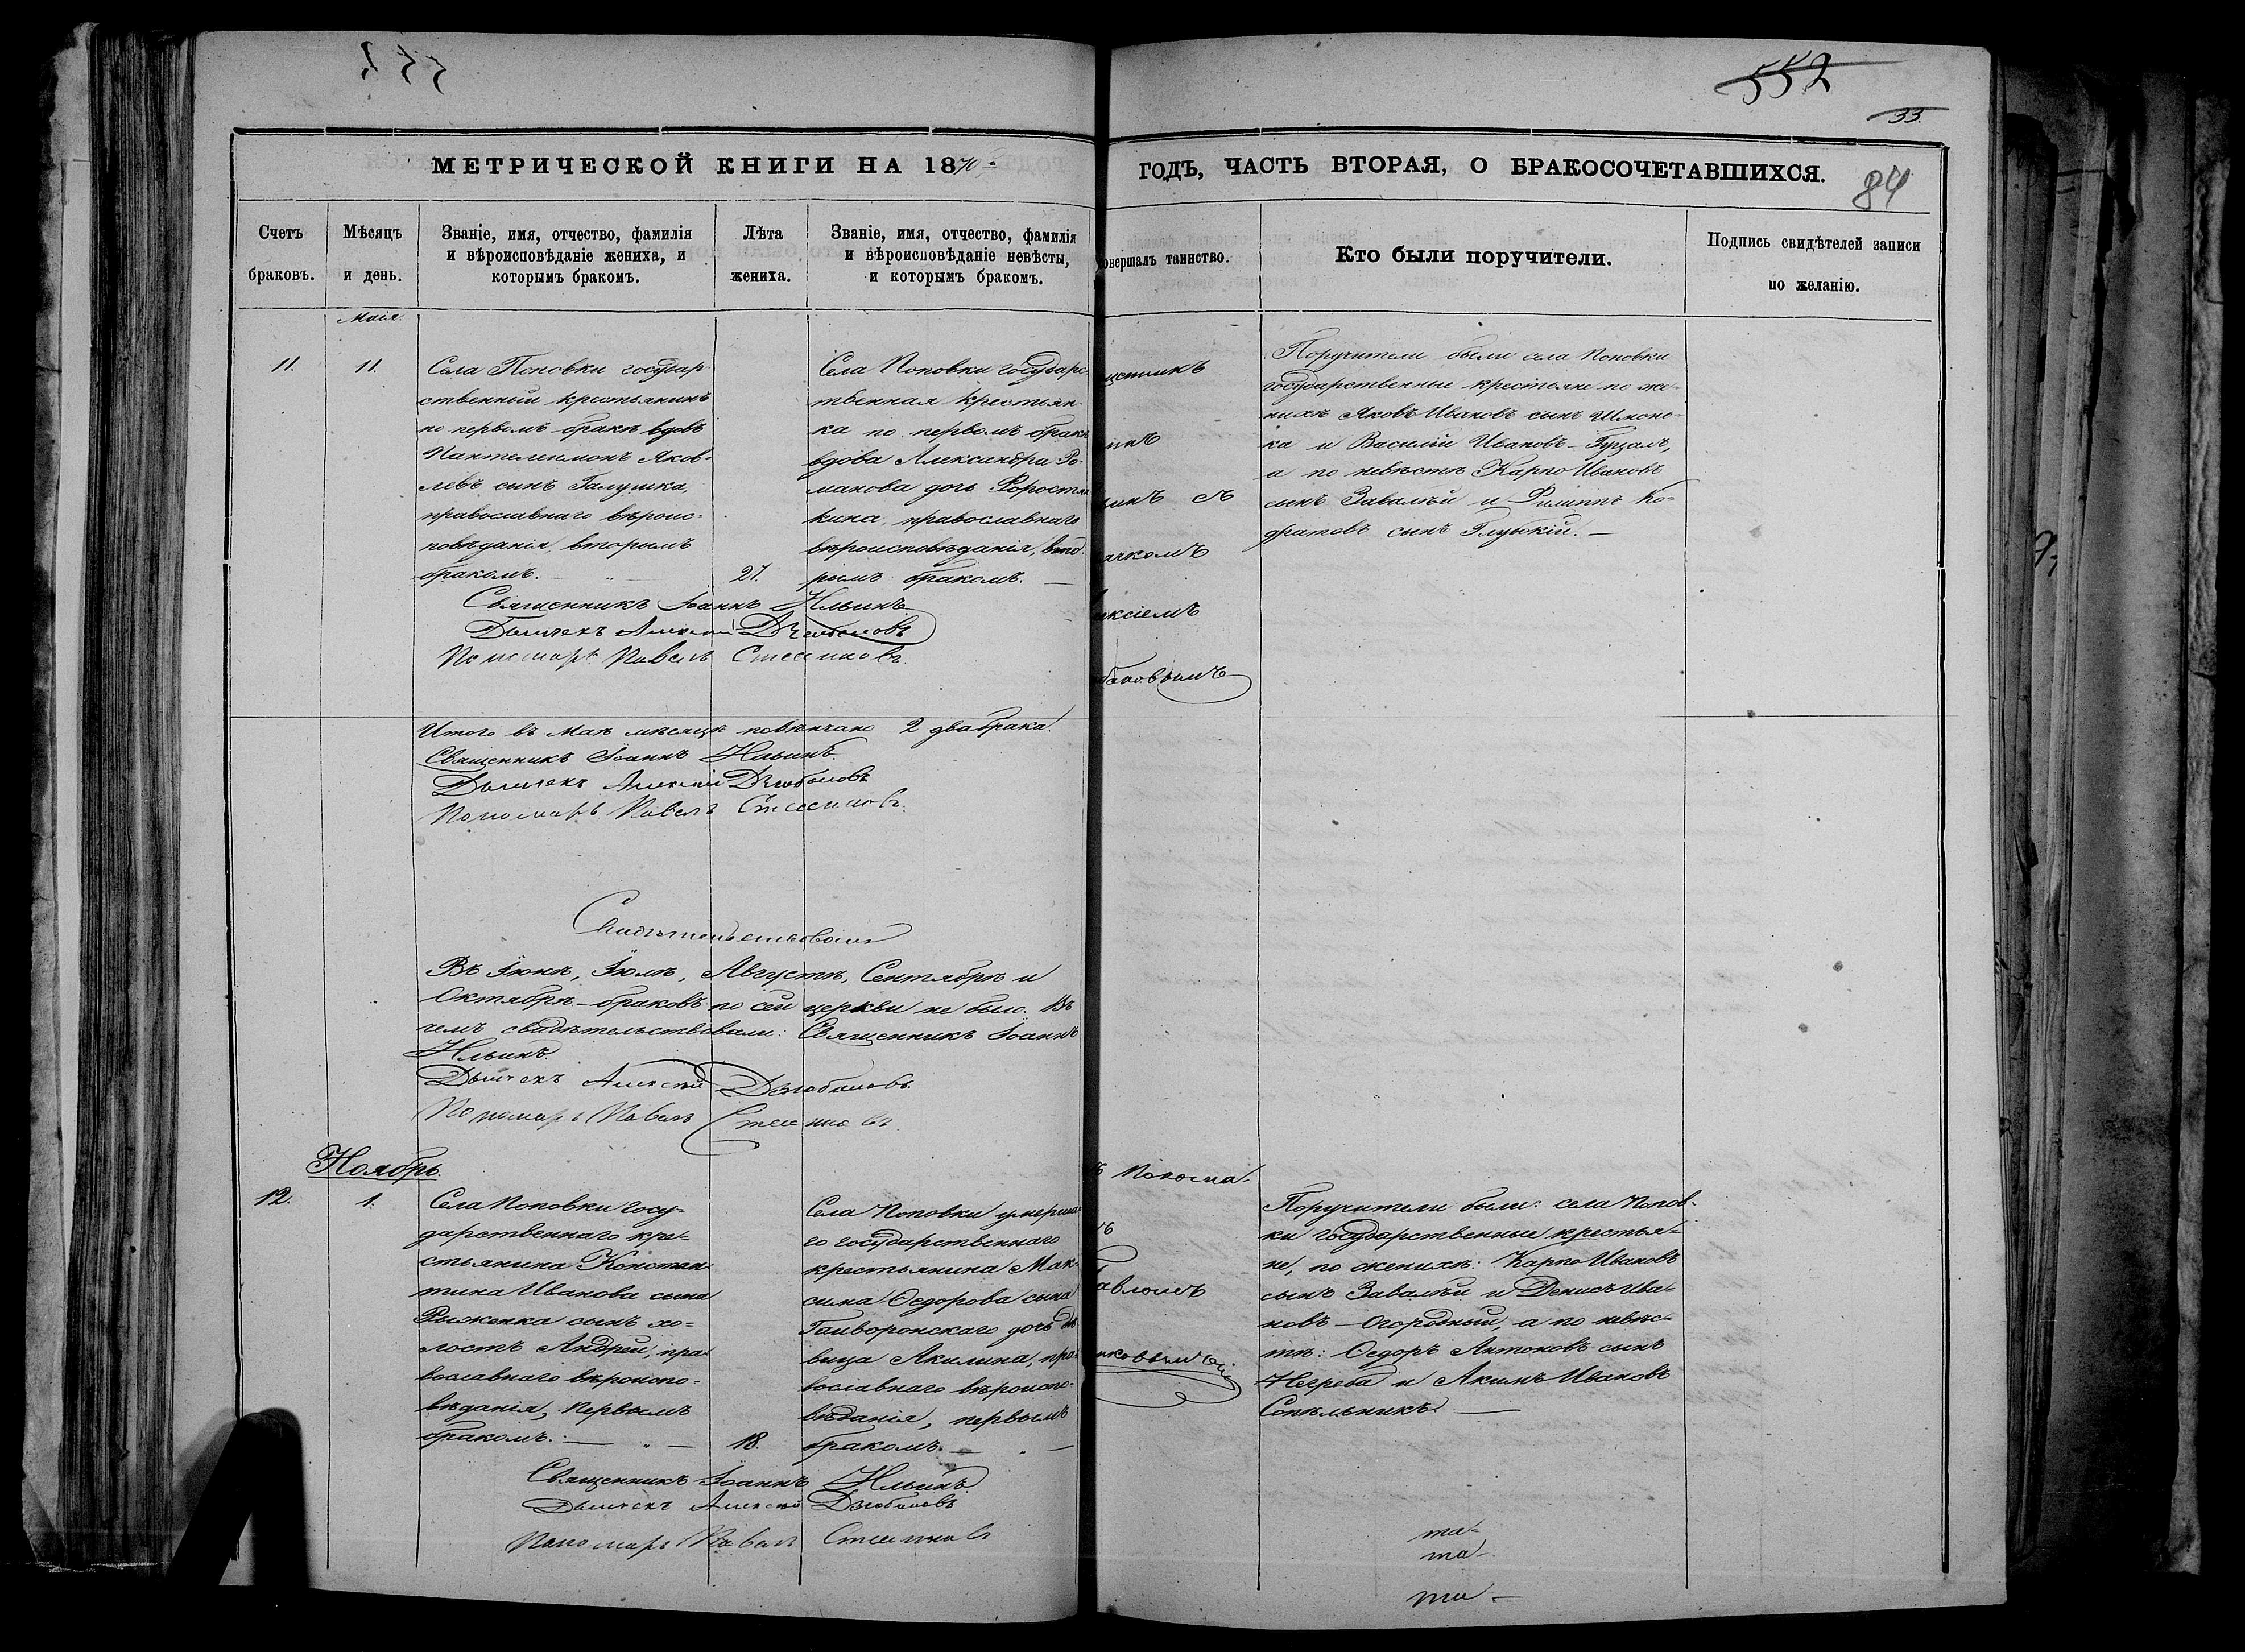 552
33.
МЕТРИЧЕСКОЙ КНИГИ НА 1870
ГОДЪ, ЧАСТЬ ВТОРАЯ, О БРАКОСОЧЕТАВШИХСЯ.
84
Счетъ
браковъ.
Мѣсяцъ
и день.
Званіе, имя, отчество, фамилія
и вѣроисповѣданіе жениха, и
которымъ бракомъ.
Лѣта
жениха.
Званіе, имя, отчество, фамилія
и вѣроисповѣданіе невѣсты,
и которымъ бракомъ.
овершалъ таинство.
Кто были поручители.
Подпись свидѣтелей записи
по желанію.
Маія.
11.
11.
Села Поповки государ
ственный крестьянинъ
по первомъ бракѣ вдовъ
Пантелеимонъ Яков-
левъ сынъ Галушка,
православнаго вѣроис-
повѣданія, вторымъ
бракомъ.
21.
Села Поповки государс-
твенная крестьян-
ка по первомъ бракѣ
вдова Александра Ро-
манова дочь
кина, православнаго
вѣроисповѣданія, вто-
рымъ бракомъ.
Священникъ Іоаннъ Ильинъ
Дьячекъ Алексій Дзюбановъ
Пономарь Павелъ
ачкомъ
ексіемъ
бановымъ
Поручители были села Поповки
государственные крестьяне по же-
нихѣ Яковъ Ивановъ сынъ
ка и Василій Ивановъ
а по невѣстѣ Карпо Ивановъ
сынъ Завалѣй и Филиппъ Ко-
дратовъ сынъ Глубкій.
Итого въ Маѣ мѣсяцѣ повѣнчано 2 два брака.
Священникъ Іоаннъ Ильинъ.
Дьячекъ Алексій Дзюбановъ
Пономарь Павелъ
Свидѣтельствовалъ
Въ Іюнѣ, Іюлѣ, Августѣ, Сентябрѣ и
Октябрѣ - браковъ по сей церкви не было. Въ
чемъ свидѣтельствовали: Священникъ Іоаннъ
Ильинъ.
Дьячекъ Алексій Дзюбановъ.
Пономарь Павелъ
Ноябрь.
12.
1.
Села Поповки госу-
дарственнаго кре-
стьянина Констан-
тина Иванова сына
Рыженка сынъ хо-
лостъ Андрей, пра-
вославнаго вѣроиспо-
вѣданія, первымъ
бракомъ.
18.
Села Поповки умерша-
го государственнаго
крестьянина Мак-
сима Ѳедорова сына
Гайворонскаго дочь дѣ-
вица Акилина, пра-
вославнаго вѣроиспо-
вѣданія, первымъ
бракомъ.
Священникъ Іоаннъ Ильинъ
Дьячекъ Алексій Дзюбановъ
Пономарь Павелъ
Понома-
авломъ
Поручители были: села Попов-
ки государственные крестья-
не, по женихѣ: Карпо Ивановъ
сынъ Завалѣй и Денисъ Ива-
новъ - Огородный, а по невѣс-
тѣ: Ѳедоръ Антоновъ сынъ
Негреба и Акимъ Ивановъ
Сопѣльникъ.
та-
та-
та-